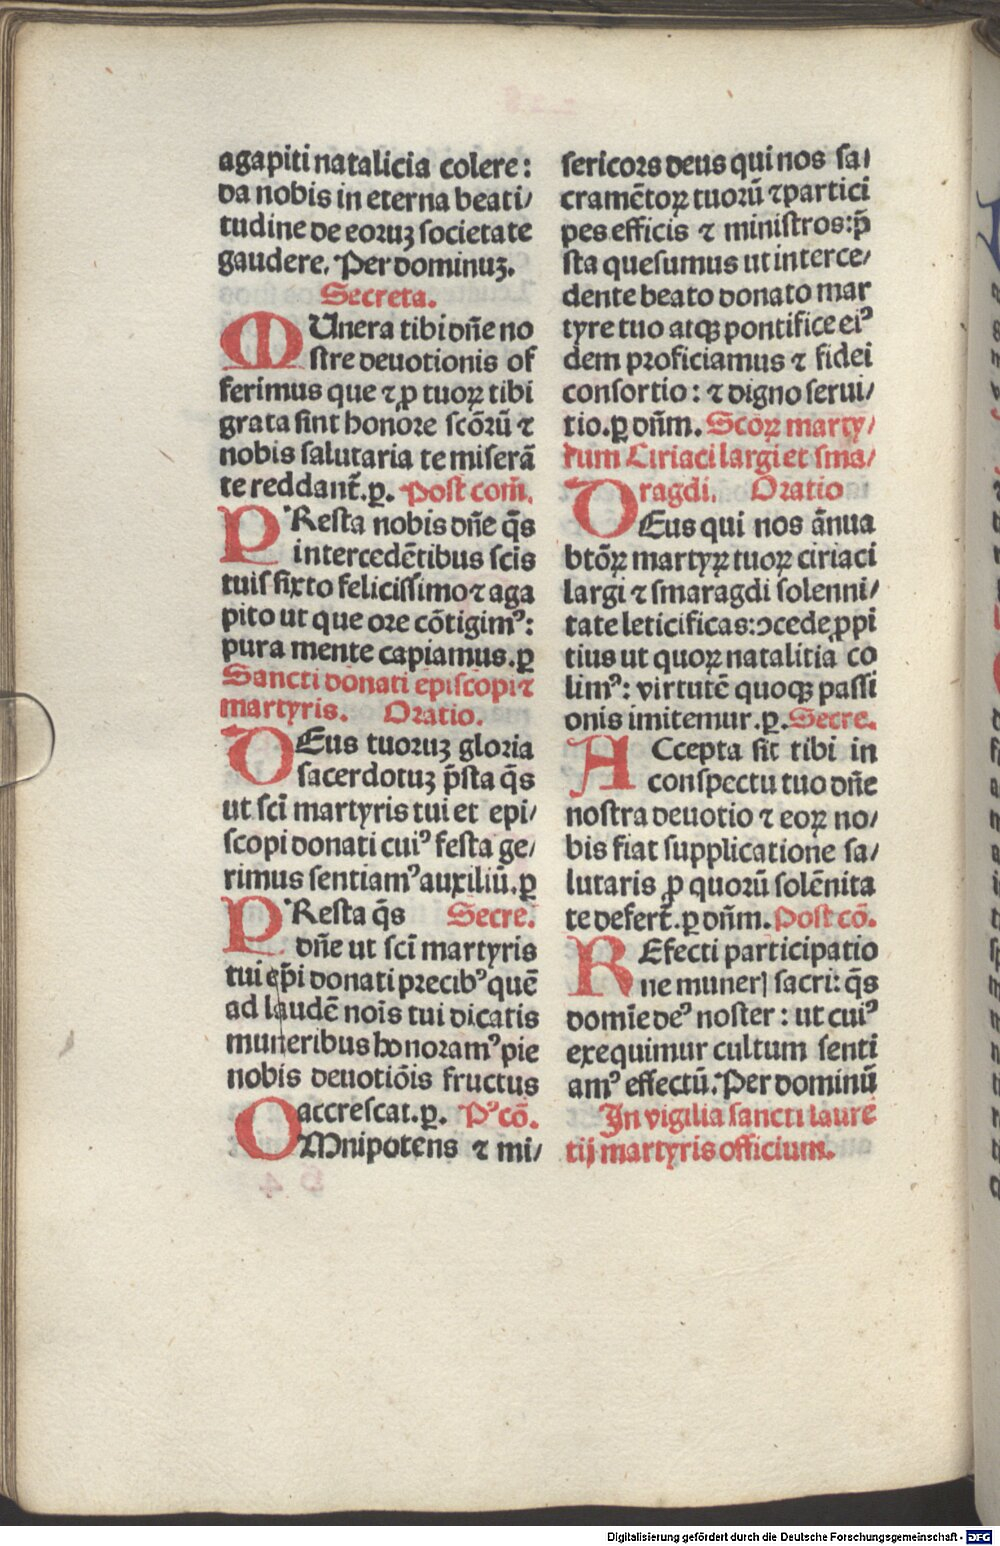 agapiti natalicia colere:
da nobis in eterna beati/
tudine de eoruz societate
gaudere. Per dominuz.
Secreta.
MUnera tibi dñe no
stre deuotionis of
ferimus que ⁊ ꝓ tuoꝝ tibi
grata sint honore scōrū ⁊
nobis salutaria te miserā
te reddant̄.ꝑ. Post com̄.
PResta nobis dñe q̄s
intercedētibus scis
tuis sixto felicissimo ⁊ aga
pito ut que ore cōtigimꝰ:
pura mente capiamus.ꝑ
Sancti donati episcopi ⁊
martyris. Oratio.
DEus tuoruz gloria
sacerdotuz p̄sta q̄s
ut sci̅ martyris tui et epi/
scopi donati cuiꝰ festa ge/
rimus sentiamꝰ auxiliū.ꝑ
PResta q̄s Secre.
dñe ut sci̅ martyris
tui ep̄i donati precibꝰ quē
ad laudē nois̄ tui dicatis
muneribus honoramꝰ pie
nobis deuotiōis fructus
accrescat.ꝑ. Pꝰcō.
OMnipotens ⁊ mi/
sericors deus qui nos sa/
cramētoꝝ tuorū ⁊ partici
pes efficis ⁊ ministros:p̄
sta quesumus ut interce/
dente beato donato mar
tyre tuo atqꝫ pontifice eiꝰ
dem proficiamus ⁊ fidei
consortio: ⁊ digno serui/
tio.ꝑ dñm. Scōꝝ marty/
rum Ciriaci largi et sma/
ragdi. Oratio
DEus qui nos ānua
btōꝝ martyꝝ tuoꝝ ciriaci
largi ⁊ smaragdi solenni/
tate leticificas:ↄcede ꝓpi
tius ut quoꝝ natalitia co
limꝰ: virtutē quoqꝫ passi
onis imitemur.ꝑ. Secre.
ACcepta sit tibi in
conspectu tuo dñe
nostra deuotio ⁊ eoꝝ no/
bis fiat supplicatione sa/
lutaris ꝓ quorū solēnita
te defert̄.ꝑ dñm. Post cō.
REfecti participatio
ne muneꝭ sacri: q̄s
domi̅e deꝰ noster: ut cuiꝰ
exequimur cultum senti
amꝰ effectū. Per dominū
In vigilia sancti laurē
tij martyris officium.
Digitalisierung gefördert durch die Deutsche Forschungsgemeinschaft - DFG